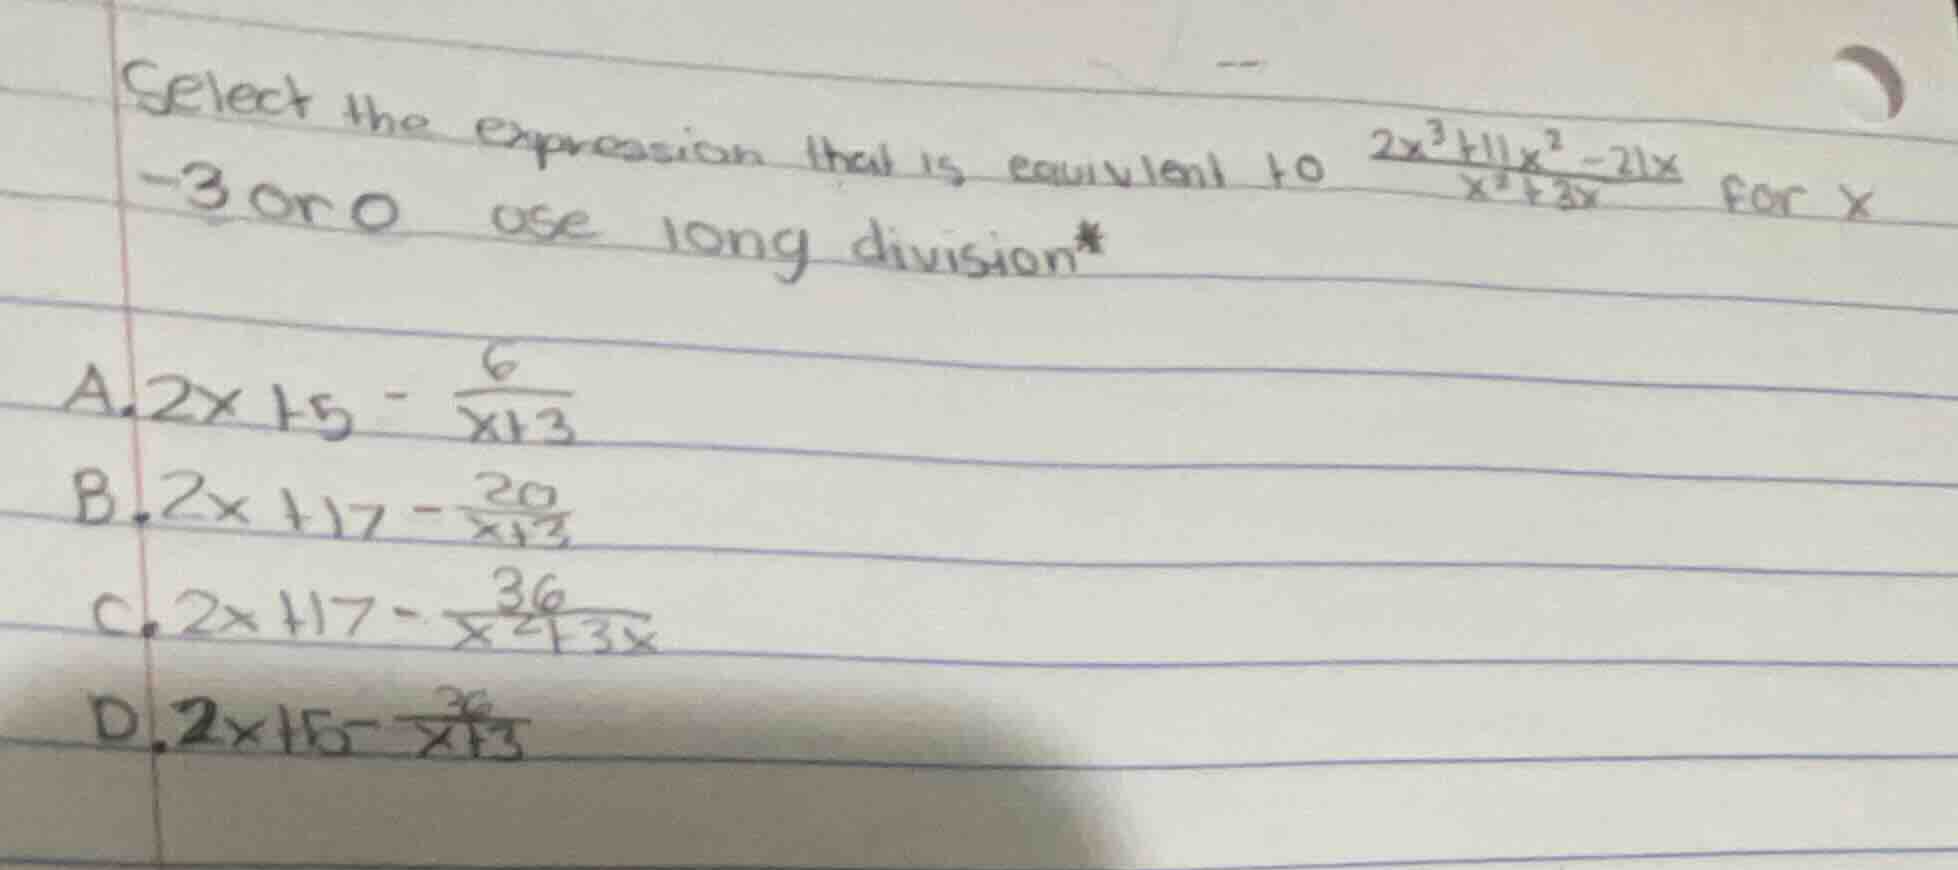 Select the expression that is equivlent to \frac{2x^3+11x^2-21x}{x^2+3x} for x
-3 or 0 use long division*
A. 2x+5 - \frac{6}{x+3}
B. 2x+17 - \frac{20}{x+3}
C. 2x+17 - \frac{36}{x^2+3x}
D. 2x+5 - \frac{36}{x+3}